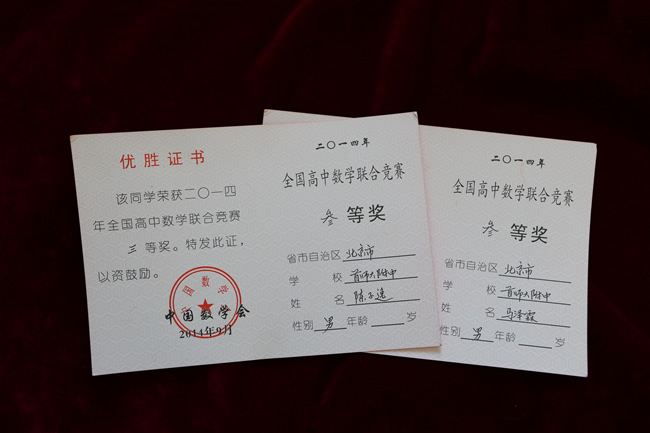 优胜证书
该同学荣获二〇一四
年全国高中数学联合竞赛
三 等奖。特发此证，
以资鼓励。
中国数学会
2014年9月
二〇一四年
全国高中数学联合竞赛
叁 等奖
省市自治区 北京市
学 校 首师大附中
姓 名 陈子逸
性别 男 年龄 岁
二〇一四年
全国高中数学联合竞赛
叁 等奖
省市自治区 北京市
学 校 首师大附中
姓 名 马泽霖
性别 男 年龄 岁